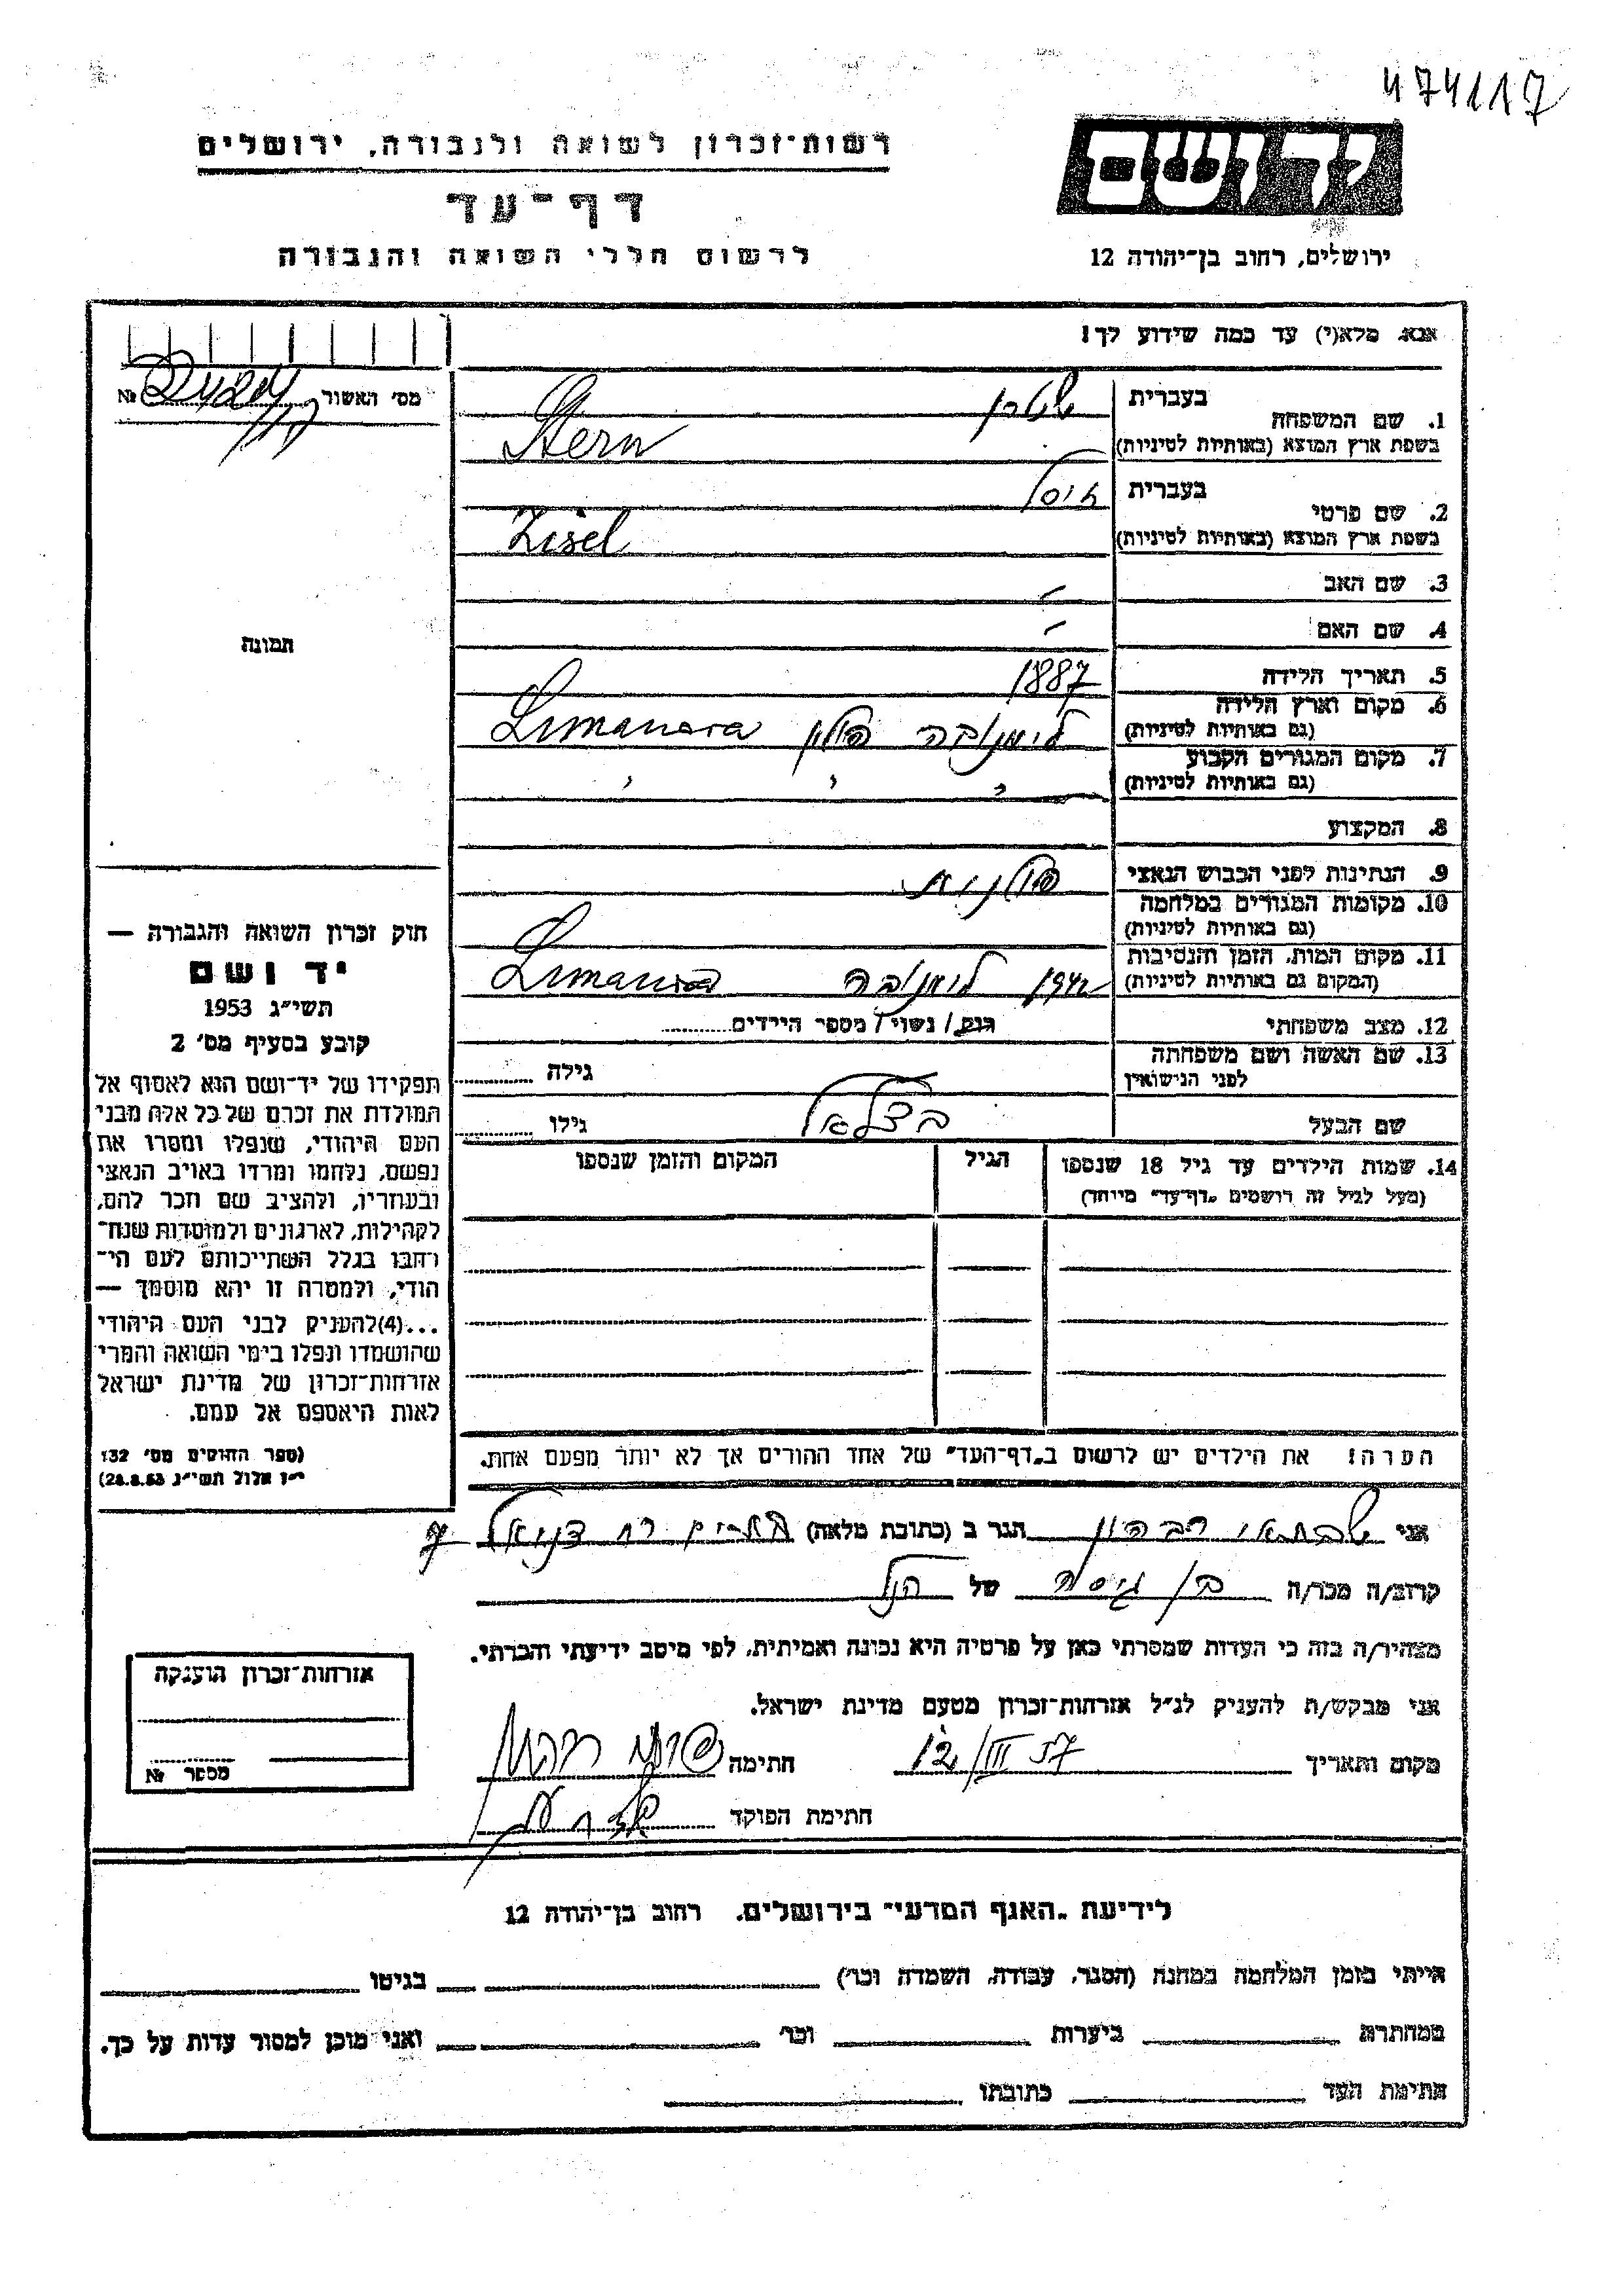 474117
רשות־זכרון לשואה ולגבורה, ירושלים
יד ושם
דף־עד
לרשום חללי השואה והגבורה
ירושלים, רחוב בן־יהודה 12
אנא, מלא(י) עד כמה שידוע לך!
מס' האשור № 
1. שם המשפחה
בעברית שטרן
בשפת ארץ המוצא (באותיות לטיניות) Stern
2. שם פרטי
בעברית זיסל
בשפת ארץ המוצא (באותיות לטיניות) Zisel
3. שם האב –
4. שם האם –
תמונה
5. תאריך הלידה 1887
6. מקום וארץ הלידה לימנובה פולין Limanova
(גם באותיות לטיניות)
7. מקום המגורים הקבוע
(גם באותיות לטיניות) " " "
8. המקצוע
9. הנתינות לפני הכבוש הנאצי פולנית
10. מקומות המגורים במלחמה
(גם באותיות לטיניות)
11. מקום המות, הזמן והנסיבות
(המקום גם באותיות לטיניות) 1942 לימנובה Limanova
12. מצב משפחתי רווק / נשוי / מספר הילדים
13. שם האשה ושם משפחתה
לפני הנישואין גילה
שם הבעל בצלאל גילו
14. שמות הילדים עד גיל 18 שנספו
(מעל לגיל זה רושמים „דף־עד" מיוחד)
הגיל
המקום והזמן שנספו
חוק זכרון השואה והגבורה —
יד ושם
תשי"ג 1953
קובע בסעיף מס' 2
תפקידו של יד־ושם הוא לאסוף אל
המולדת את זכרם של כל אלה מבני
העם היהודי, שנפלו ומסרו את
נפשם, נלחמו ומרדו באויב הנאצי
ובעוזריו, ולהציב שם וזכר להם,
לקהילות, לארגונים ולמוסדות שנח־
רבו בגלל השתייכותם לעם הי־
הודי, ולמטרה זו יהא מוסמך —
...(4)להעניק לבני העם היהודי
שהושמדו ונפלו בימי השואה והמרי
אזרחות־זכרון של מדינת ישראל
לאות היאספם אל עמם.
(ספר החוקים מס' 132
י"ז אלול תשי"ג 28.8.53)
הערה! את הילדים יש לרשום ב„דף־העד" של אחד ההורים אך לא יותר מפעם אחת.
אני שבתאי הגר ב (כתובת מלאה) רח דניאל 7
קרוב/ה מכר/ה בן גיסה של הנל
מצהיר/ה בזה כי העדות שמסרתי כאן על פרטיה היא נכונה ואמיתית, לפי מיטב ידיעתי והכרתי.
אני מבקש/ת להעניק לנ"ל אזרחות־זכרון מטעם מדינת ישראל.
מקום ותאריך 12/III 57 חתימה
חתימת הפוקד
אזרחות־זכרון הוענקה
מספר №
לידיעת „האגף המדעי" בירושלים, רחוב בן־יהודה 12
הייתי בזמן המלחמה במחנה (הסגר, עבודה, השמדה וכו') בגיטו
במחתרת ביערות וכו' ואני מוכן למסור עדות על כך.
חתימת העד כתובתו